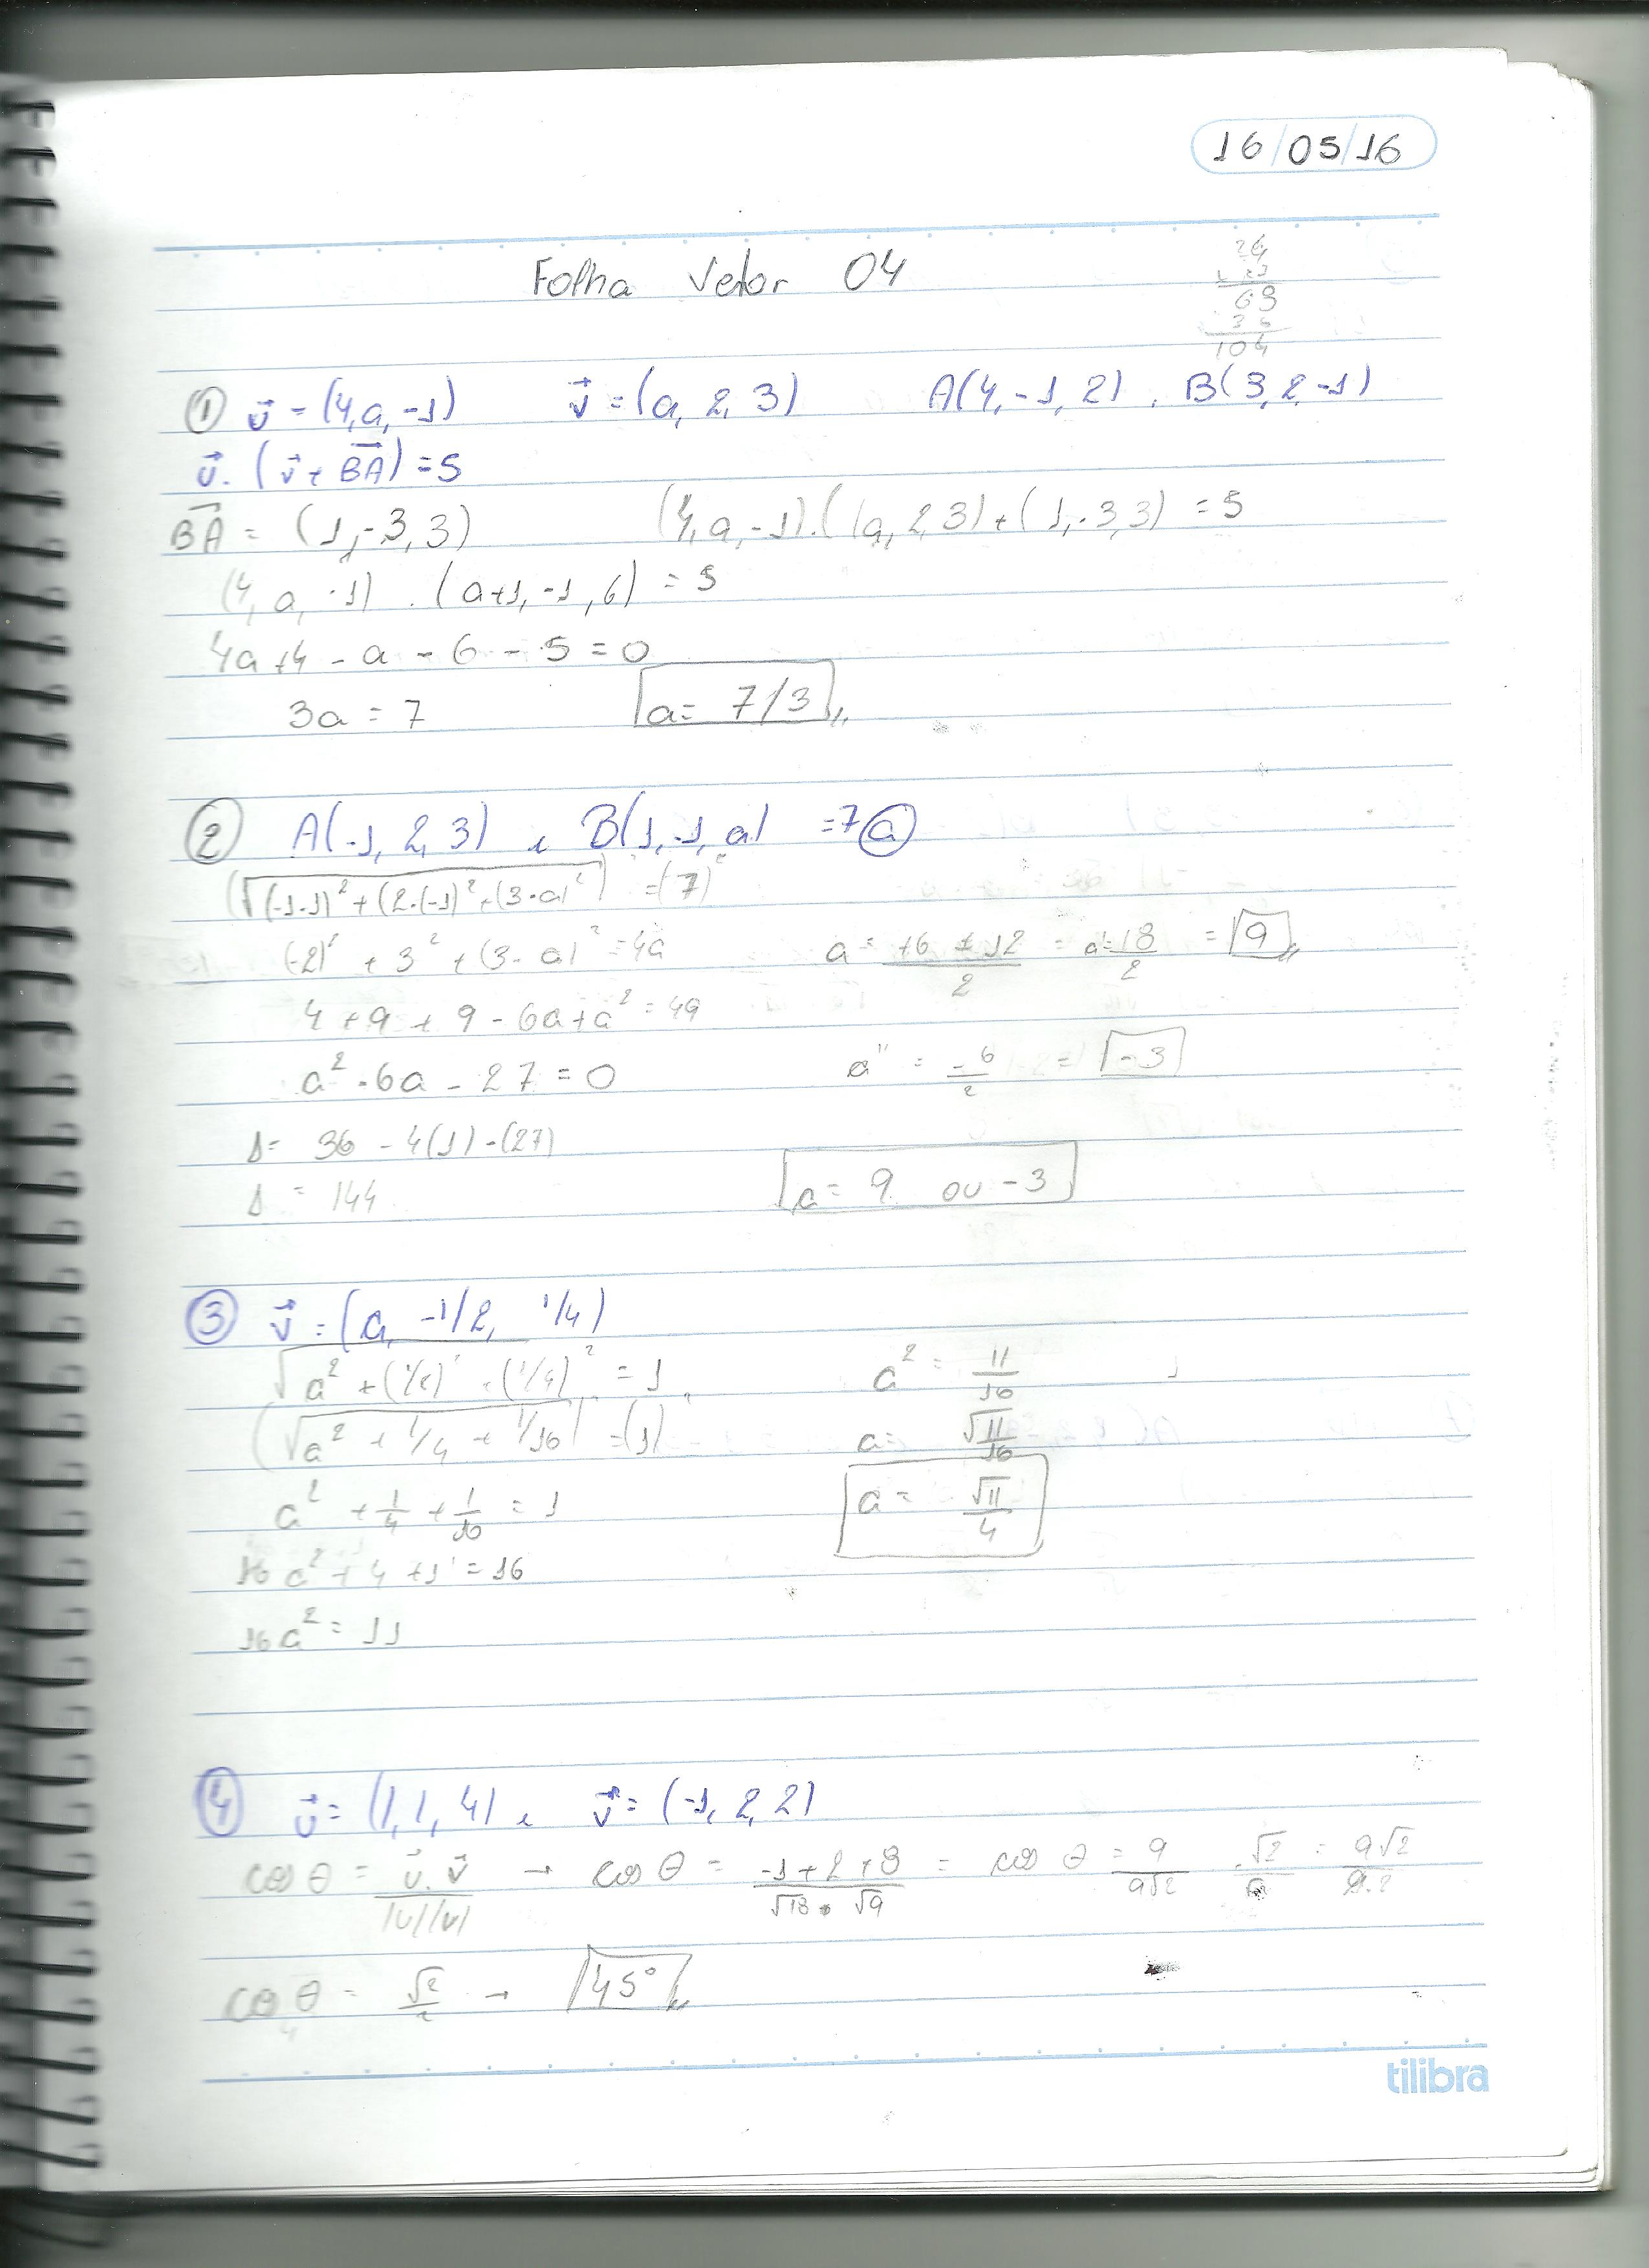 16/05/16
Folha Vetor 04
104
① u⃗ = (4, a, -1)   v⃗ = (a, 2, 3)   A(4, -1, 2), B(3, 2, -1)
u⃗ . (v⃗ + BA⃗) = 5
BA⃗ = (1, -3, 3)   (4, a, -1) . (a, 2, 3) + (1, -3, 3) = 5
(4, a, -1) . (a+1, -1, 6) = 5
4a + 4 - a - 6 - 5 = 0
3a = 7   a = 7/3
② A(-1, 2, 3) e B(1, -1, a) = 7 ⓐ
(√(-1-1)² + (2-(-1)² + (3-a)²)² = (7)²
(-2)² + 3² + (3-a)² = 49   a = +6 ± 12/2 = a' = 18/2 = 9
4 + 9 + 9 - 6a + a² = 49
a² - 6a - 27 = 0   a'' = -6/2 = -3
Δ = 36 - 4(1) - (27)
Δ = 144   a = 9 ou -3
③ v⃗ = (a, -1/2, 1/4)
√a² + (1/2)² + (1/4)² = 1   a² = 11/16
(√a² + 1/4 + 1/16) = (1)   a = √11/16
a² + 1/4 + 1/16 = 1   a = √11/4
16a² + 4 + 1 = 16
16a² = 11
④ u⃗ = (1, 1, 4) e v⃗ = (-1, 2, 2)
cos θ = u⃗ . v⃗/|u||v| → cos θ = -1 + 2 + 8/√18 . √9 = cos θ = 9/9√2 . √2/√2 = 9√2/9.2
cos θ = √2/2 → 45°
tilibra